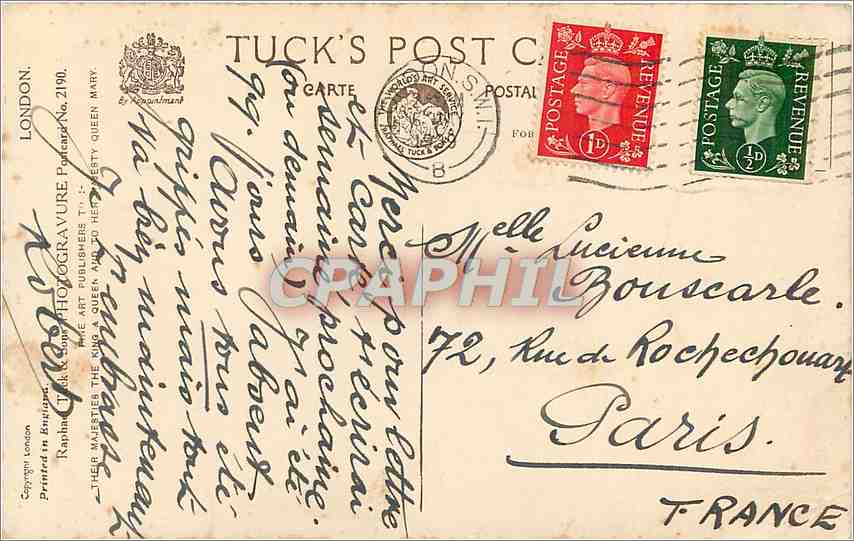 TUCK'S POST CA
CARTE POSTAL
FOR
By Appointment
THE WORLD'S ART SERVICE
RAPHAEL TUCK & SONS LTD
N.S.W.1.
B
POSTAGE REVENUE
1D
POSTAGE REVENUE
½D
LONDON.
Raphael Tuck & Sons PHOTOGRAVURE Postcard No. 2190.
FINE ART PUBLISHERS TO
THEIR MAJESTIES THE KING & QUEEN AND TO HER MAJESTY QUEEN MARY.
Copyright London
Printed in England.
Merci pour lettre
et carte t'écrirai
semaine prochaine.
ou demain J'ai été
qq. jours absent
Avons tous été
grippés mais tout
va bien maintenant
Je t'embrasse
Robert
Melle Lucienne
Bouscarle.
72, Rue de Rochechouart
Paris.
FRANCE
CPAPHIL